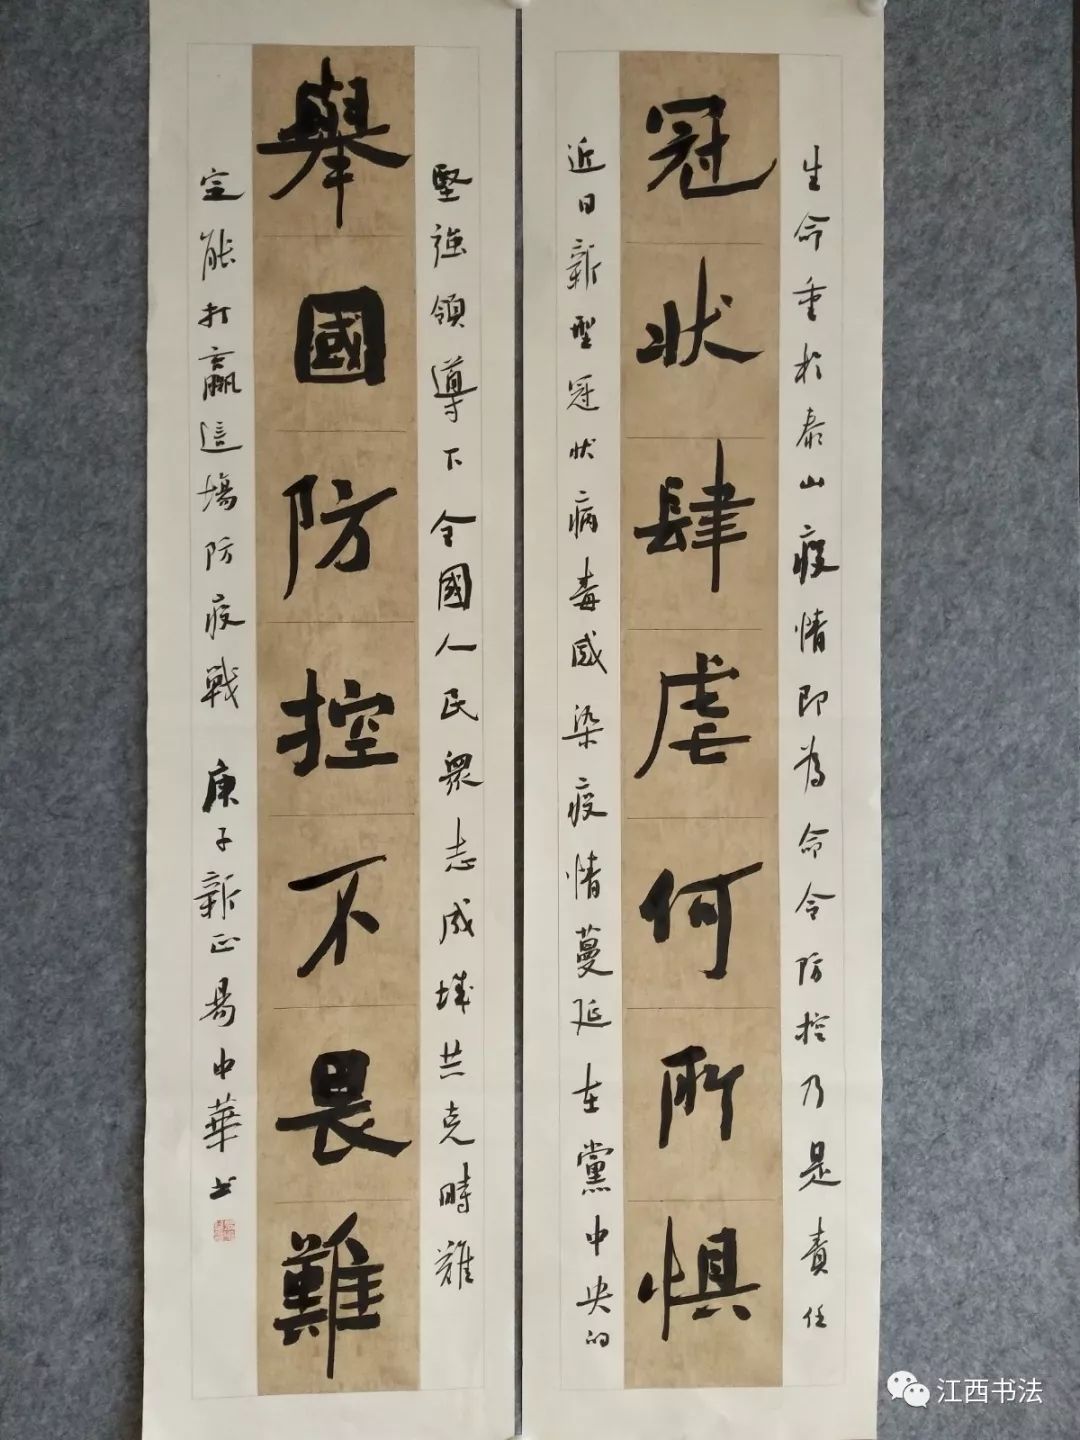 生命重於泰山疫情即為命令防控乃是責任
冠狀肆虐何所惧
近日新型冠狀病毒感染疫情蔓延在黨中央的
堅強領導下全國人民衆志成城共克時難
舉國防控不畏難
定能打贏這場防疫戰 庚子新正易中華书
江西书法